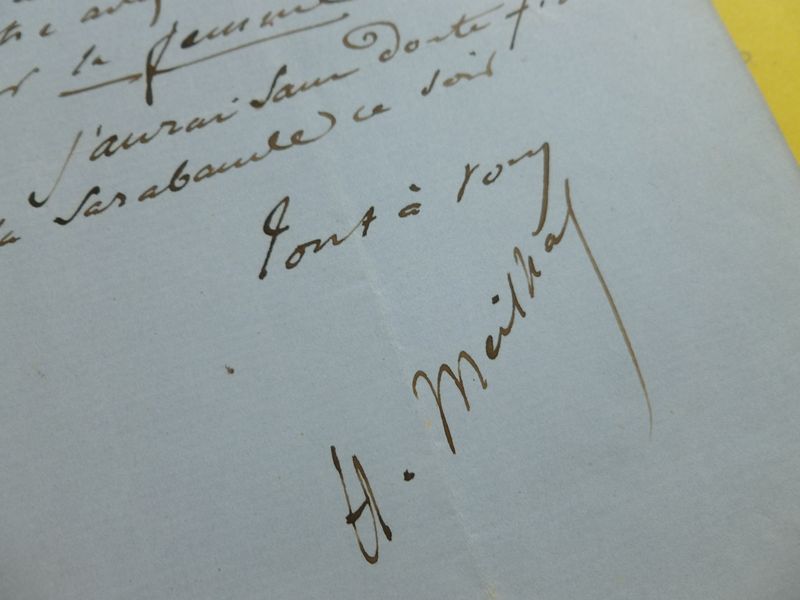 la femme
j'aurai sans doute fi
la Sarabande ce soir
Tout à vous
H. Meilhac